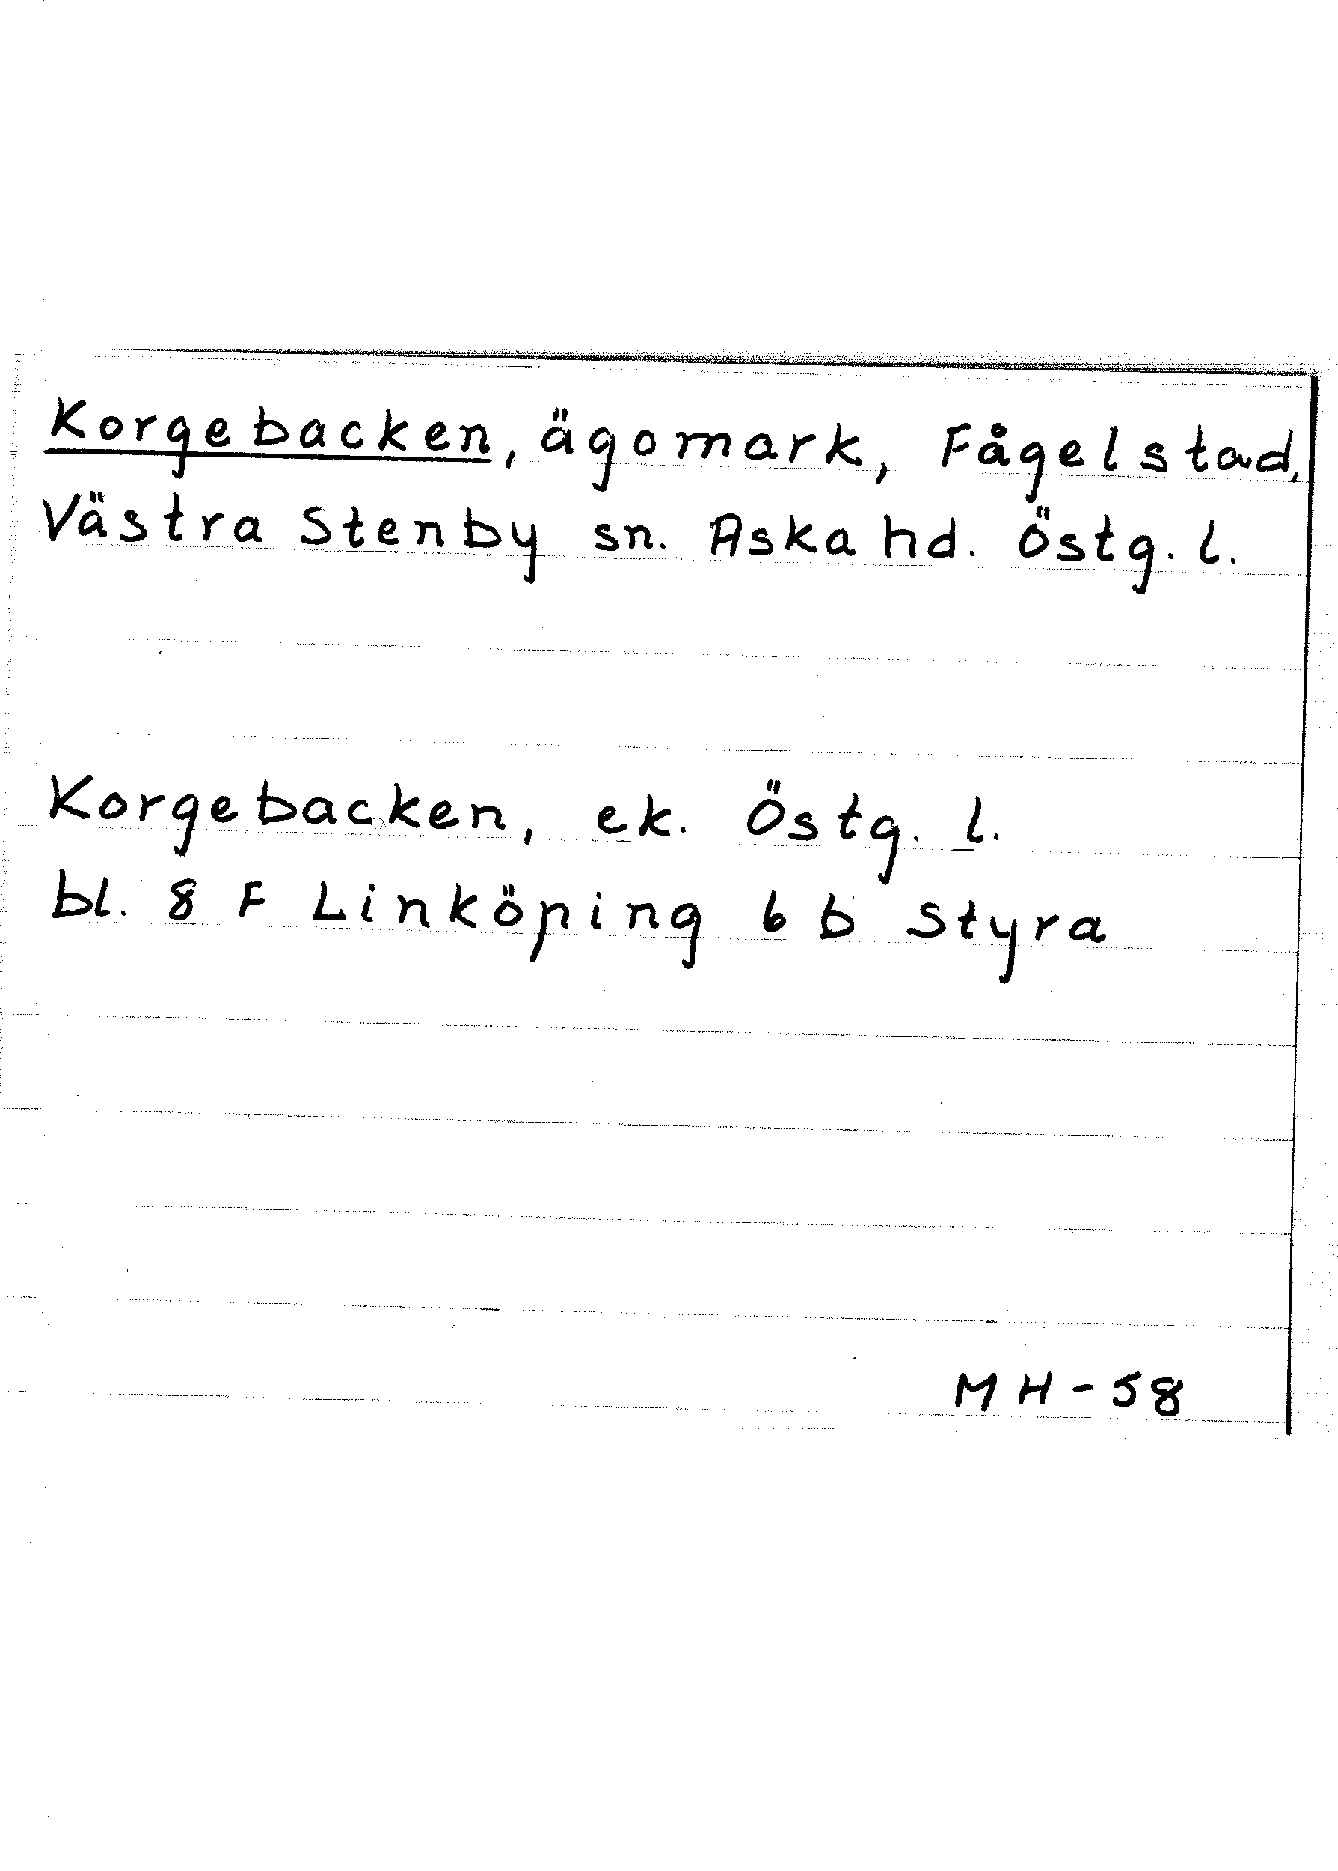 Korgebacken, ägomark, Fågelstad,
Västra Stenby sn. Aska hd. Östg. l.
Korgebacken, ek. Östg. l.
bl. 8 F Linköping 6 b Styra
MH-58